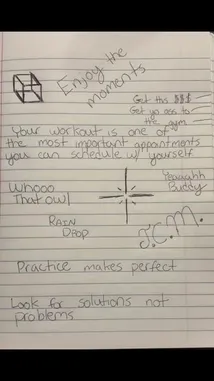 Enjoy the
moments
Get this $$$
Get yo ass to
the gym
Your workout is one of
the most important appointments
you can schedule w/ yourself
Whooo
That owl
Yeaaahh
Buddy
RAIN
DROP
J.C.M.
Practice makes perfect
Look for solutions not
problems